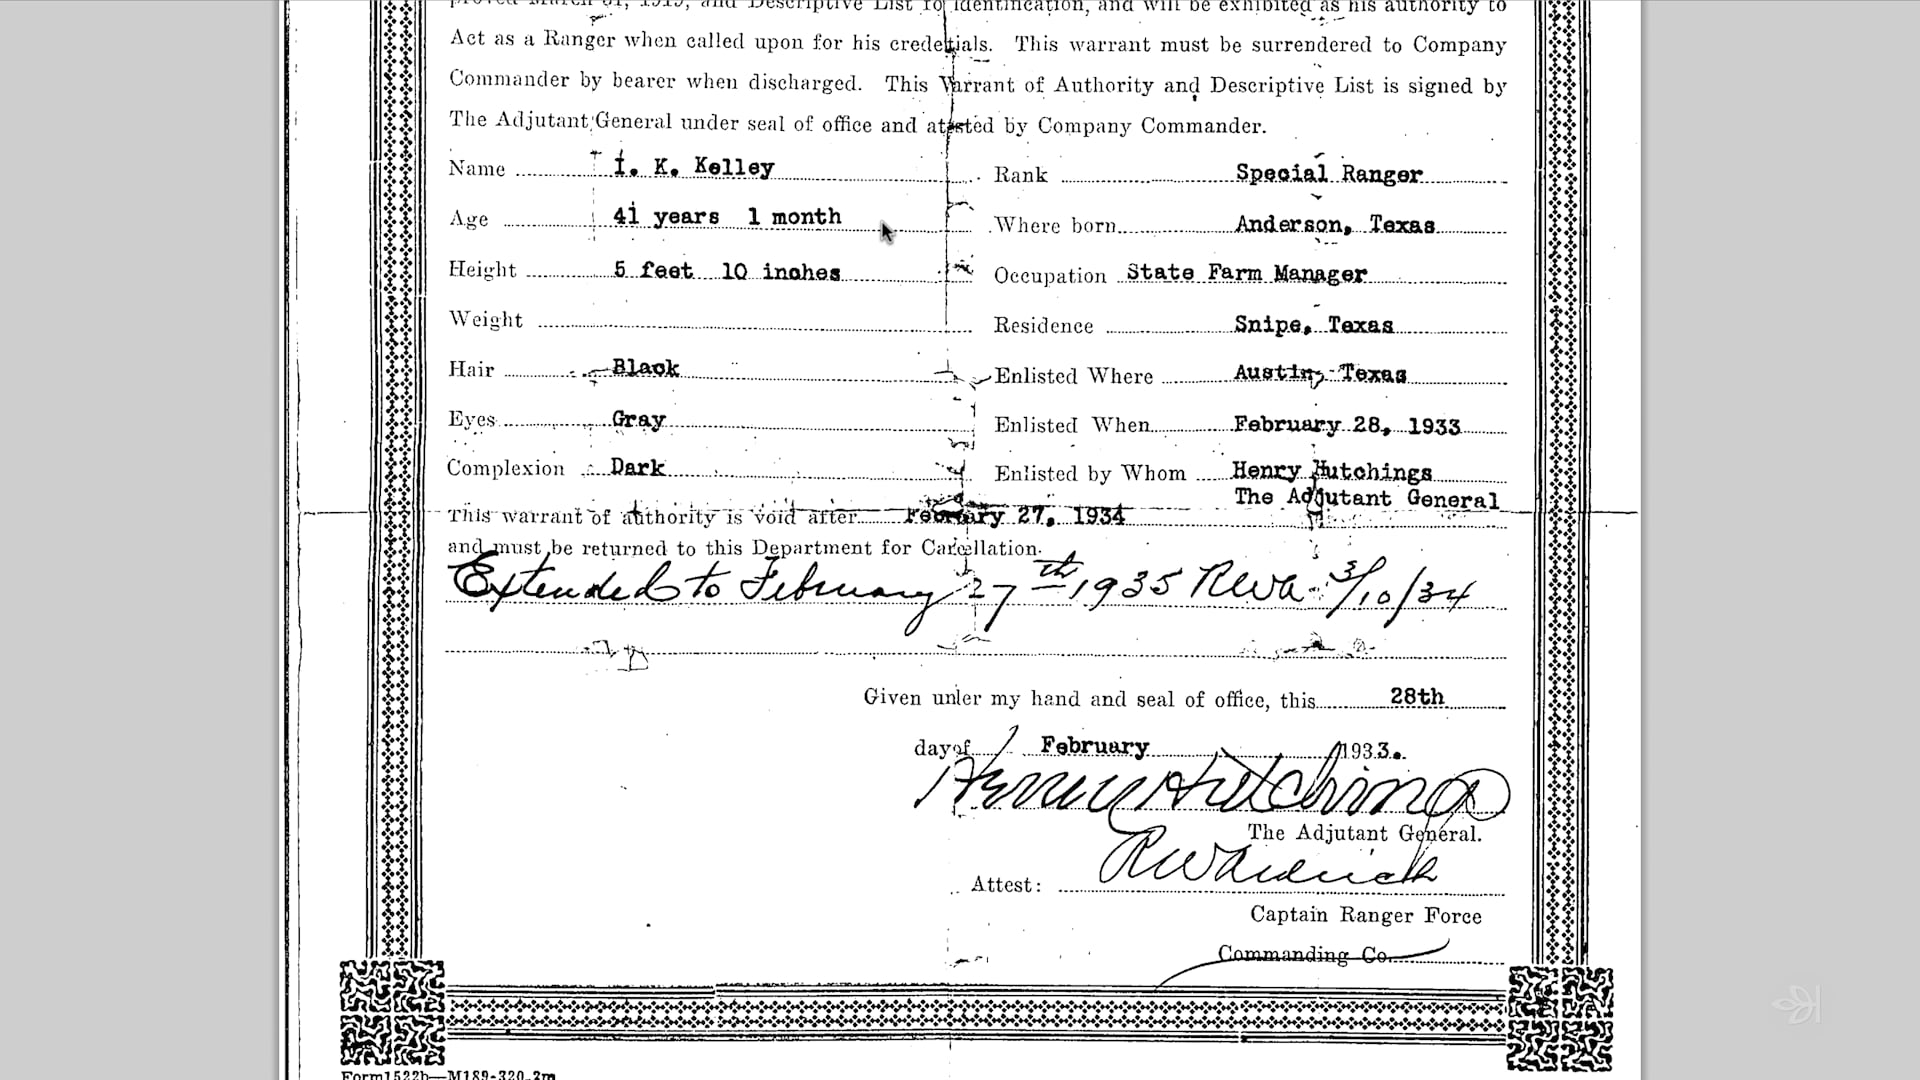 proved March 31, 1919, and Descriptive List for identification, and will be exhibited as his authority to
Act as a Ranger when called upon for his credetials. This warrant must be surrendered to Company
Commander by bearer when discharged. This Warrant of Authority and Descriptive List is signed by
The Adjutant General under seal of office and attested by Company Commander.
Name I. K. Kelley
Rank Special Ranger
Age 41 years 1 month
Where born Anderson, Texas
Height 5 feet 10 inches
Occupation State Farm Manager
Weight
Residence Snipe, Texas
Hair Black
Enlisted Where Austin, Texas
Eyes Gray
Enlisted When February 28, 1933
Complexion Dark
Enlisted by Whom Henry Hutchings
The Adjutant General
This warrant of authority is void after February 27, 1934
and must be returned to this Department for Cancellation.
Extended to February 27th 1935 RWA 3/10/34
Given under my hand and seal of office, this 28th
day of February 1933.
Henry Hutchings
The Adjutant General.
Attest: RW Aldrich
Captain Ranger Force
Commanding Co.
Form 1522b—M189-320-2m